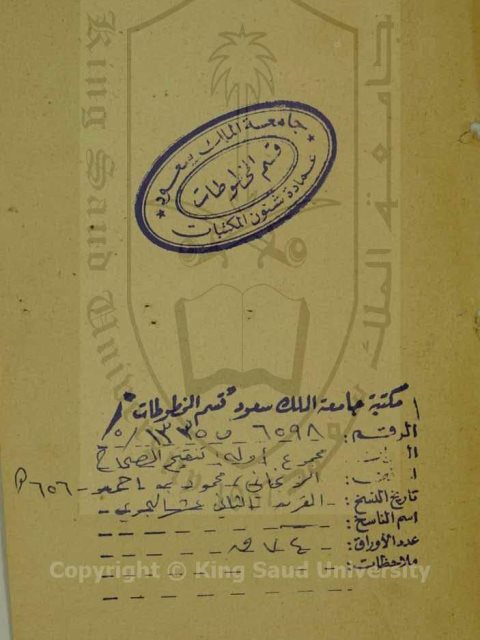 جامعة الملك سعود
قسم المخطوطات
عمادة شئون المكتبات
King Saud Univ
جامعة الملك
مكتبة جامعة الملك سعود "قسم المخطوطات"
الرقم: ٦٥٩٨
مجموع أوله تنقيح الصحاح
الزنجاني، محمود بن احمد - ٦٥٦
تاريخ النسخ: القرن الثاني عشر الهجري
اسم الناسخ:
عدد الأوراق:
ملاحظات:
Copyright © King Saud University